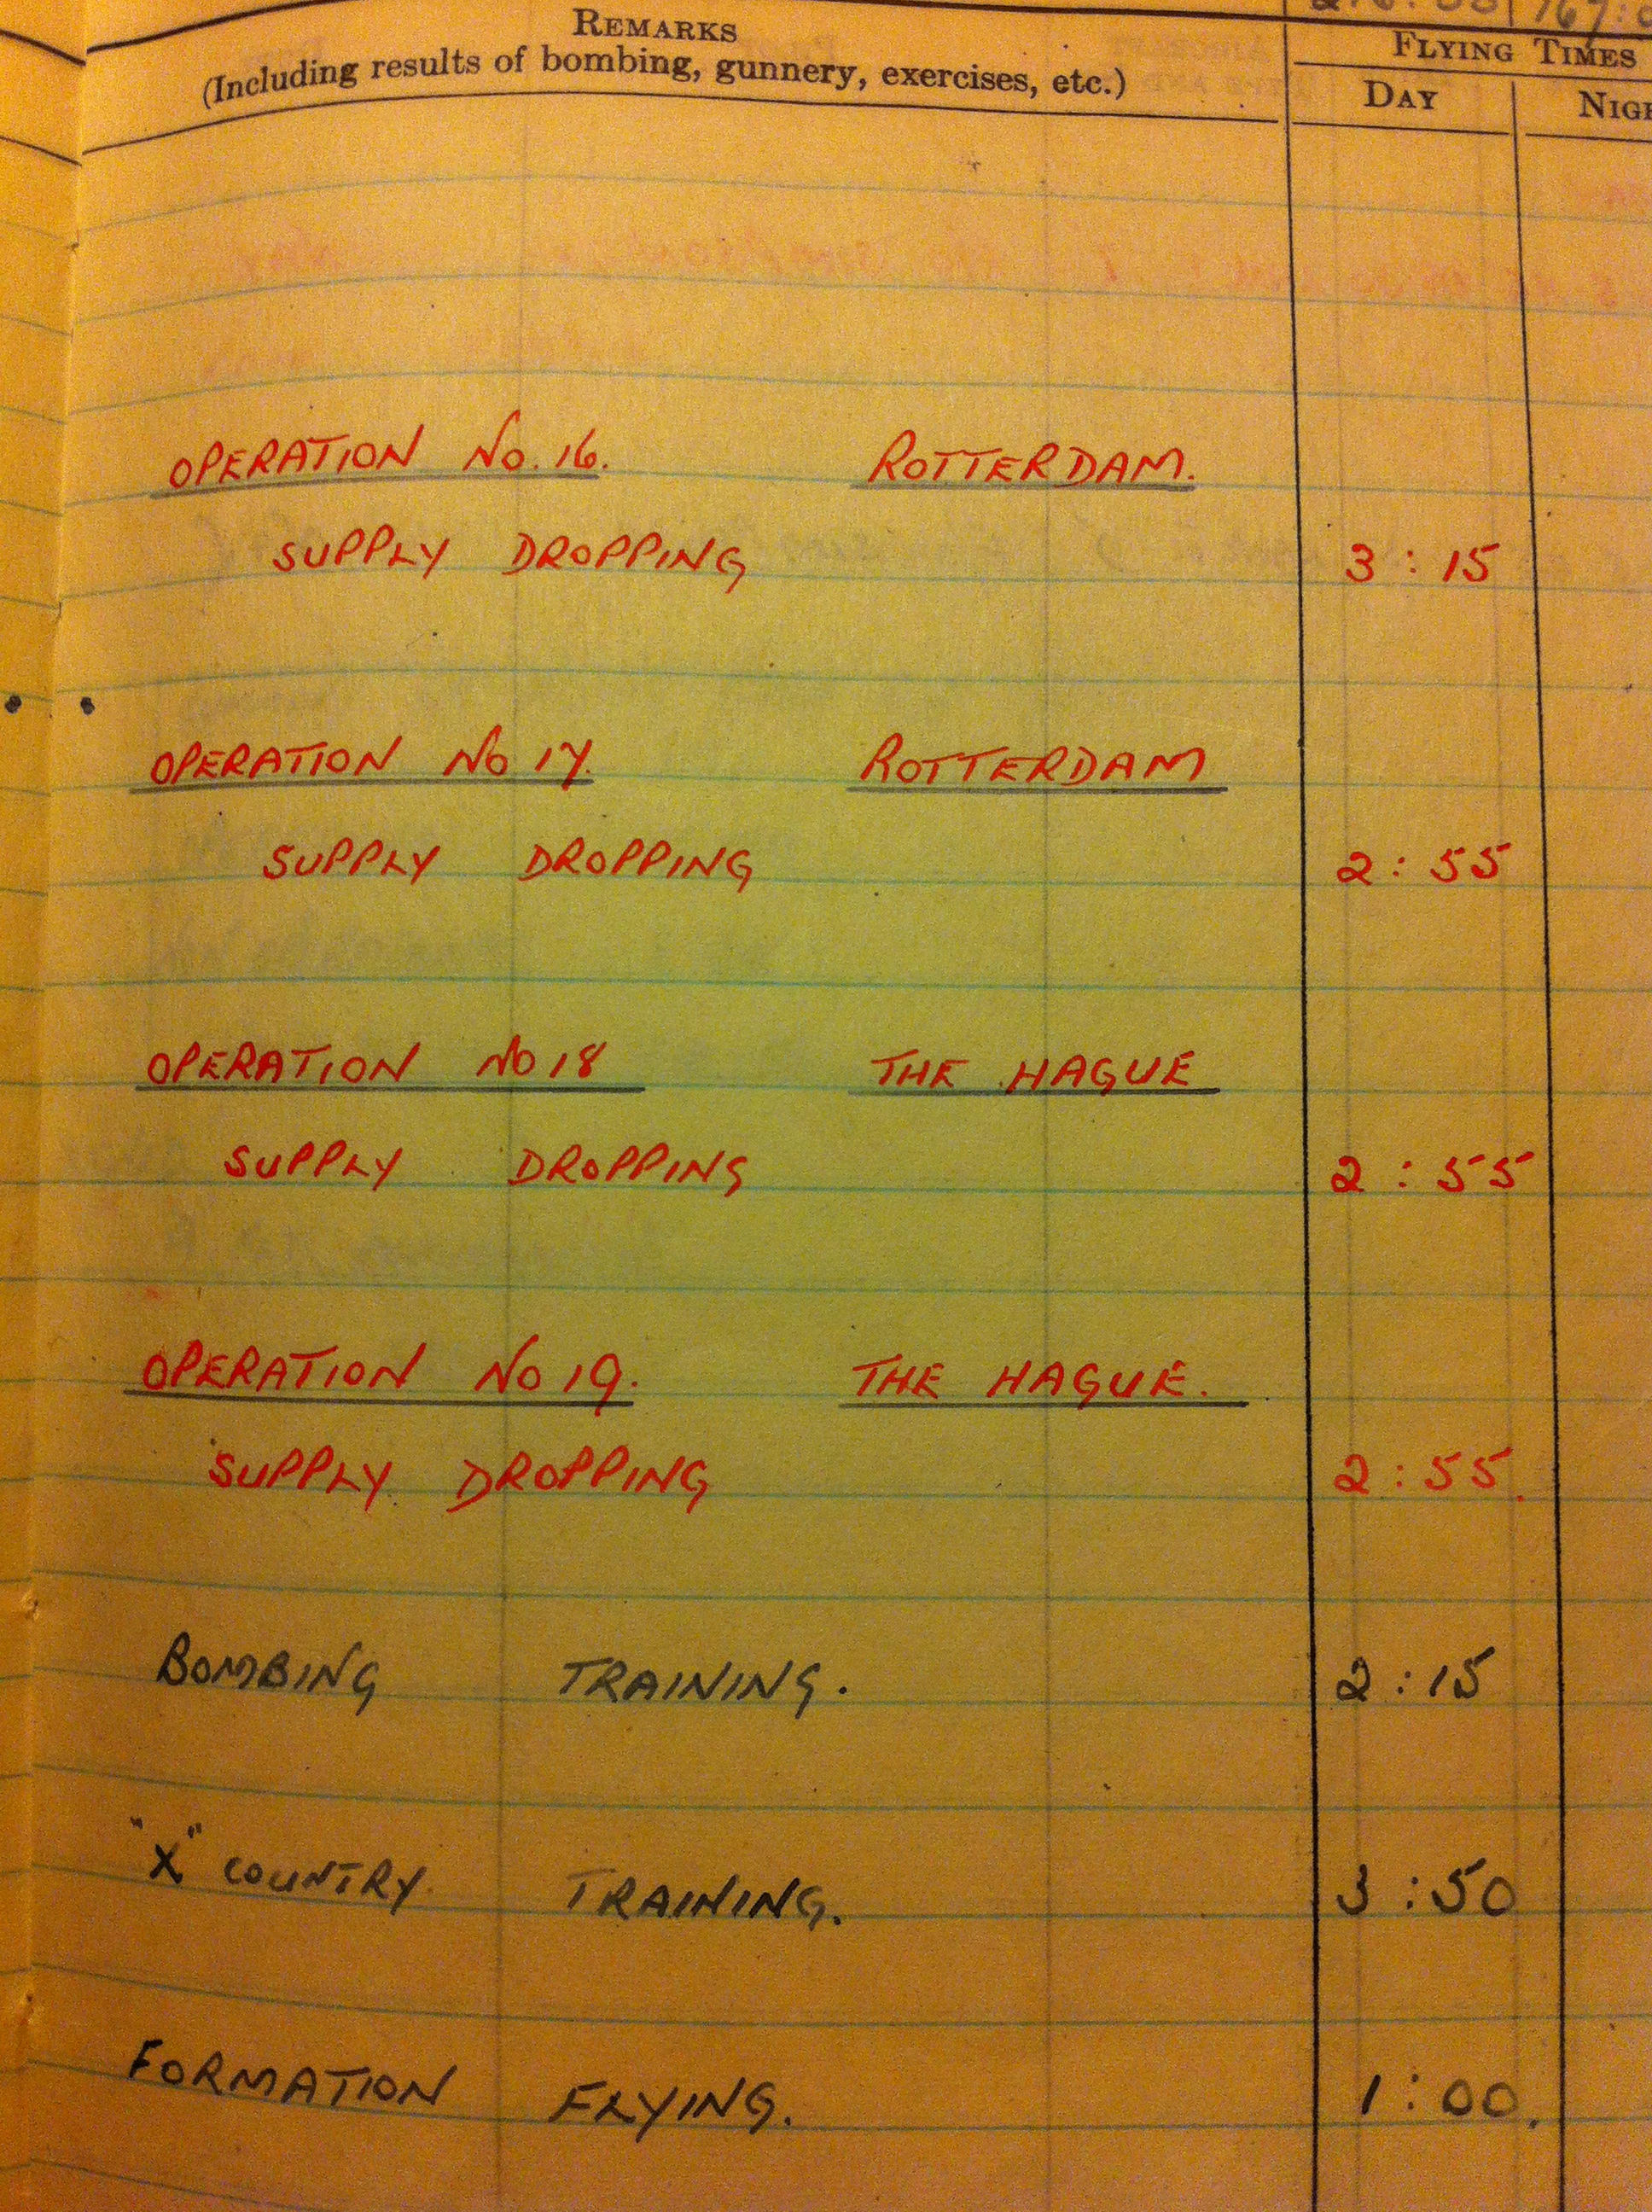 REMARKS
(Including results of bombing, gunnery, exercises, etc.)
FLYING TIMES
DAY
OPERATION No. 16. ROTTERDAM.
SUPPLY DROPPING 3 : 15
OPERATION No 17. ROTTERDAM
SUPPLY DROPPING 2 : 55
OPERATION No 18 THE HAGUE
SUPPLY DROPPING 2 : 55
OPERATION No 19. THE HAGUE.
SUPPLY DROPPING 2 : 55.
BOMBING TRAINING. 2 : 15
"X" COUNTRY TRAINING. 3 : 50
FORMATION FLYING. 1 : 00.